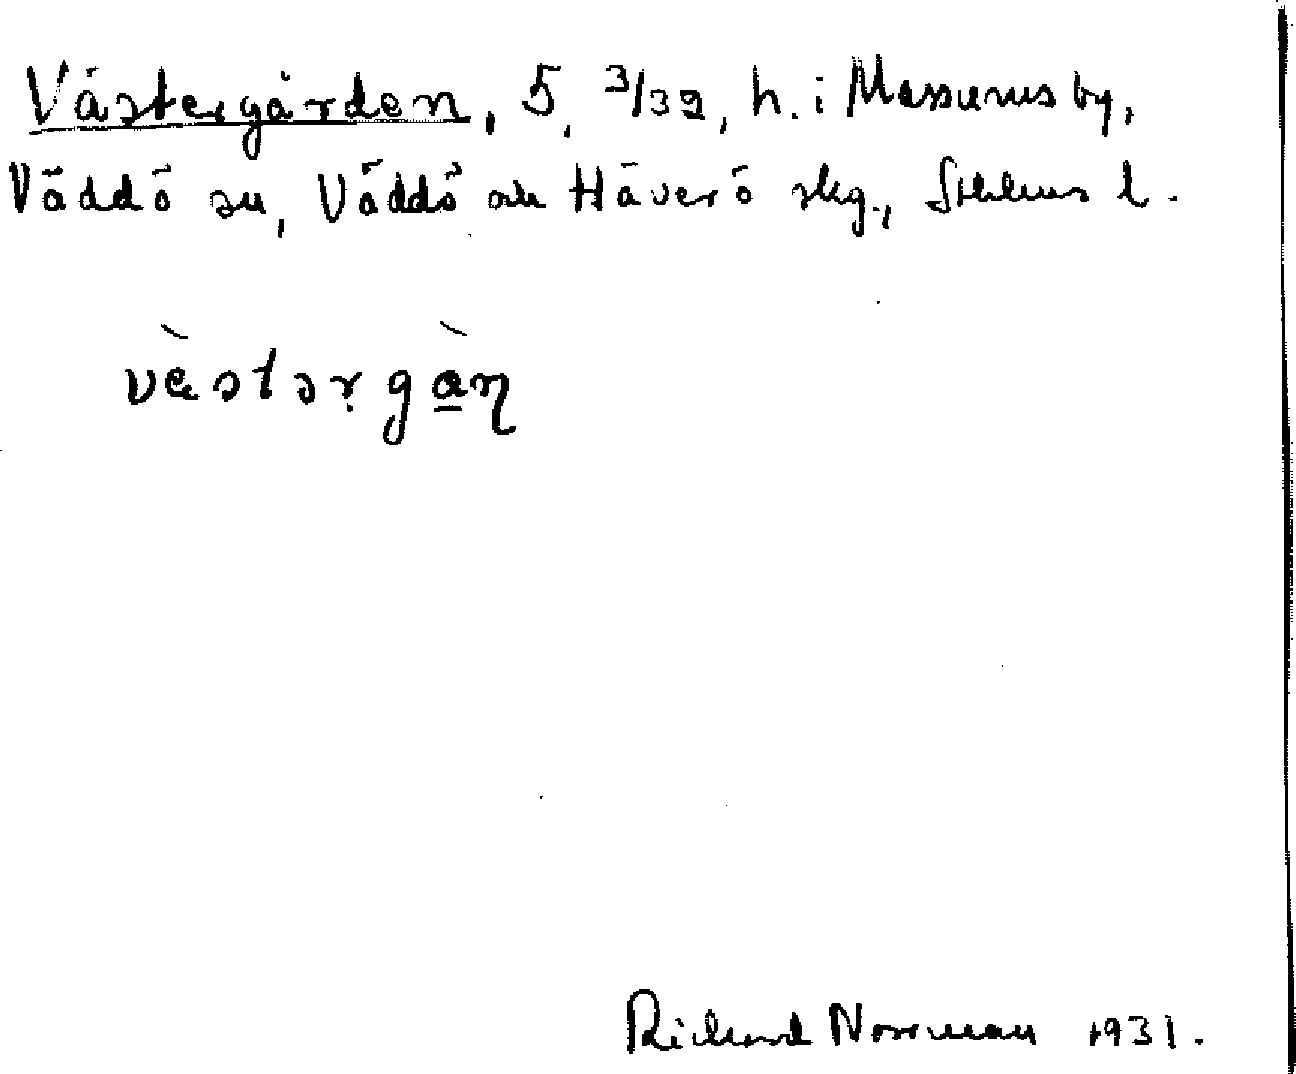 Västergården, 5, 3/32, h. i Massumsby,
Väddö sn, Väddö och Häverö skg., Sthlms l.
västərgàn
Richard Norrman 1931.